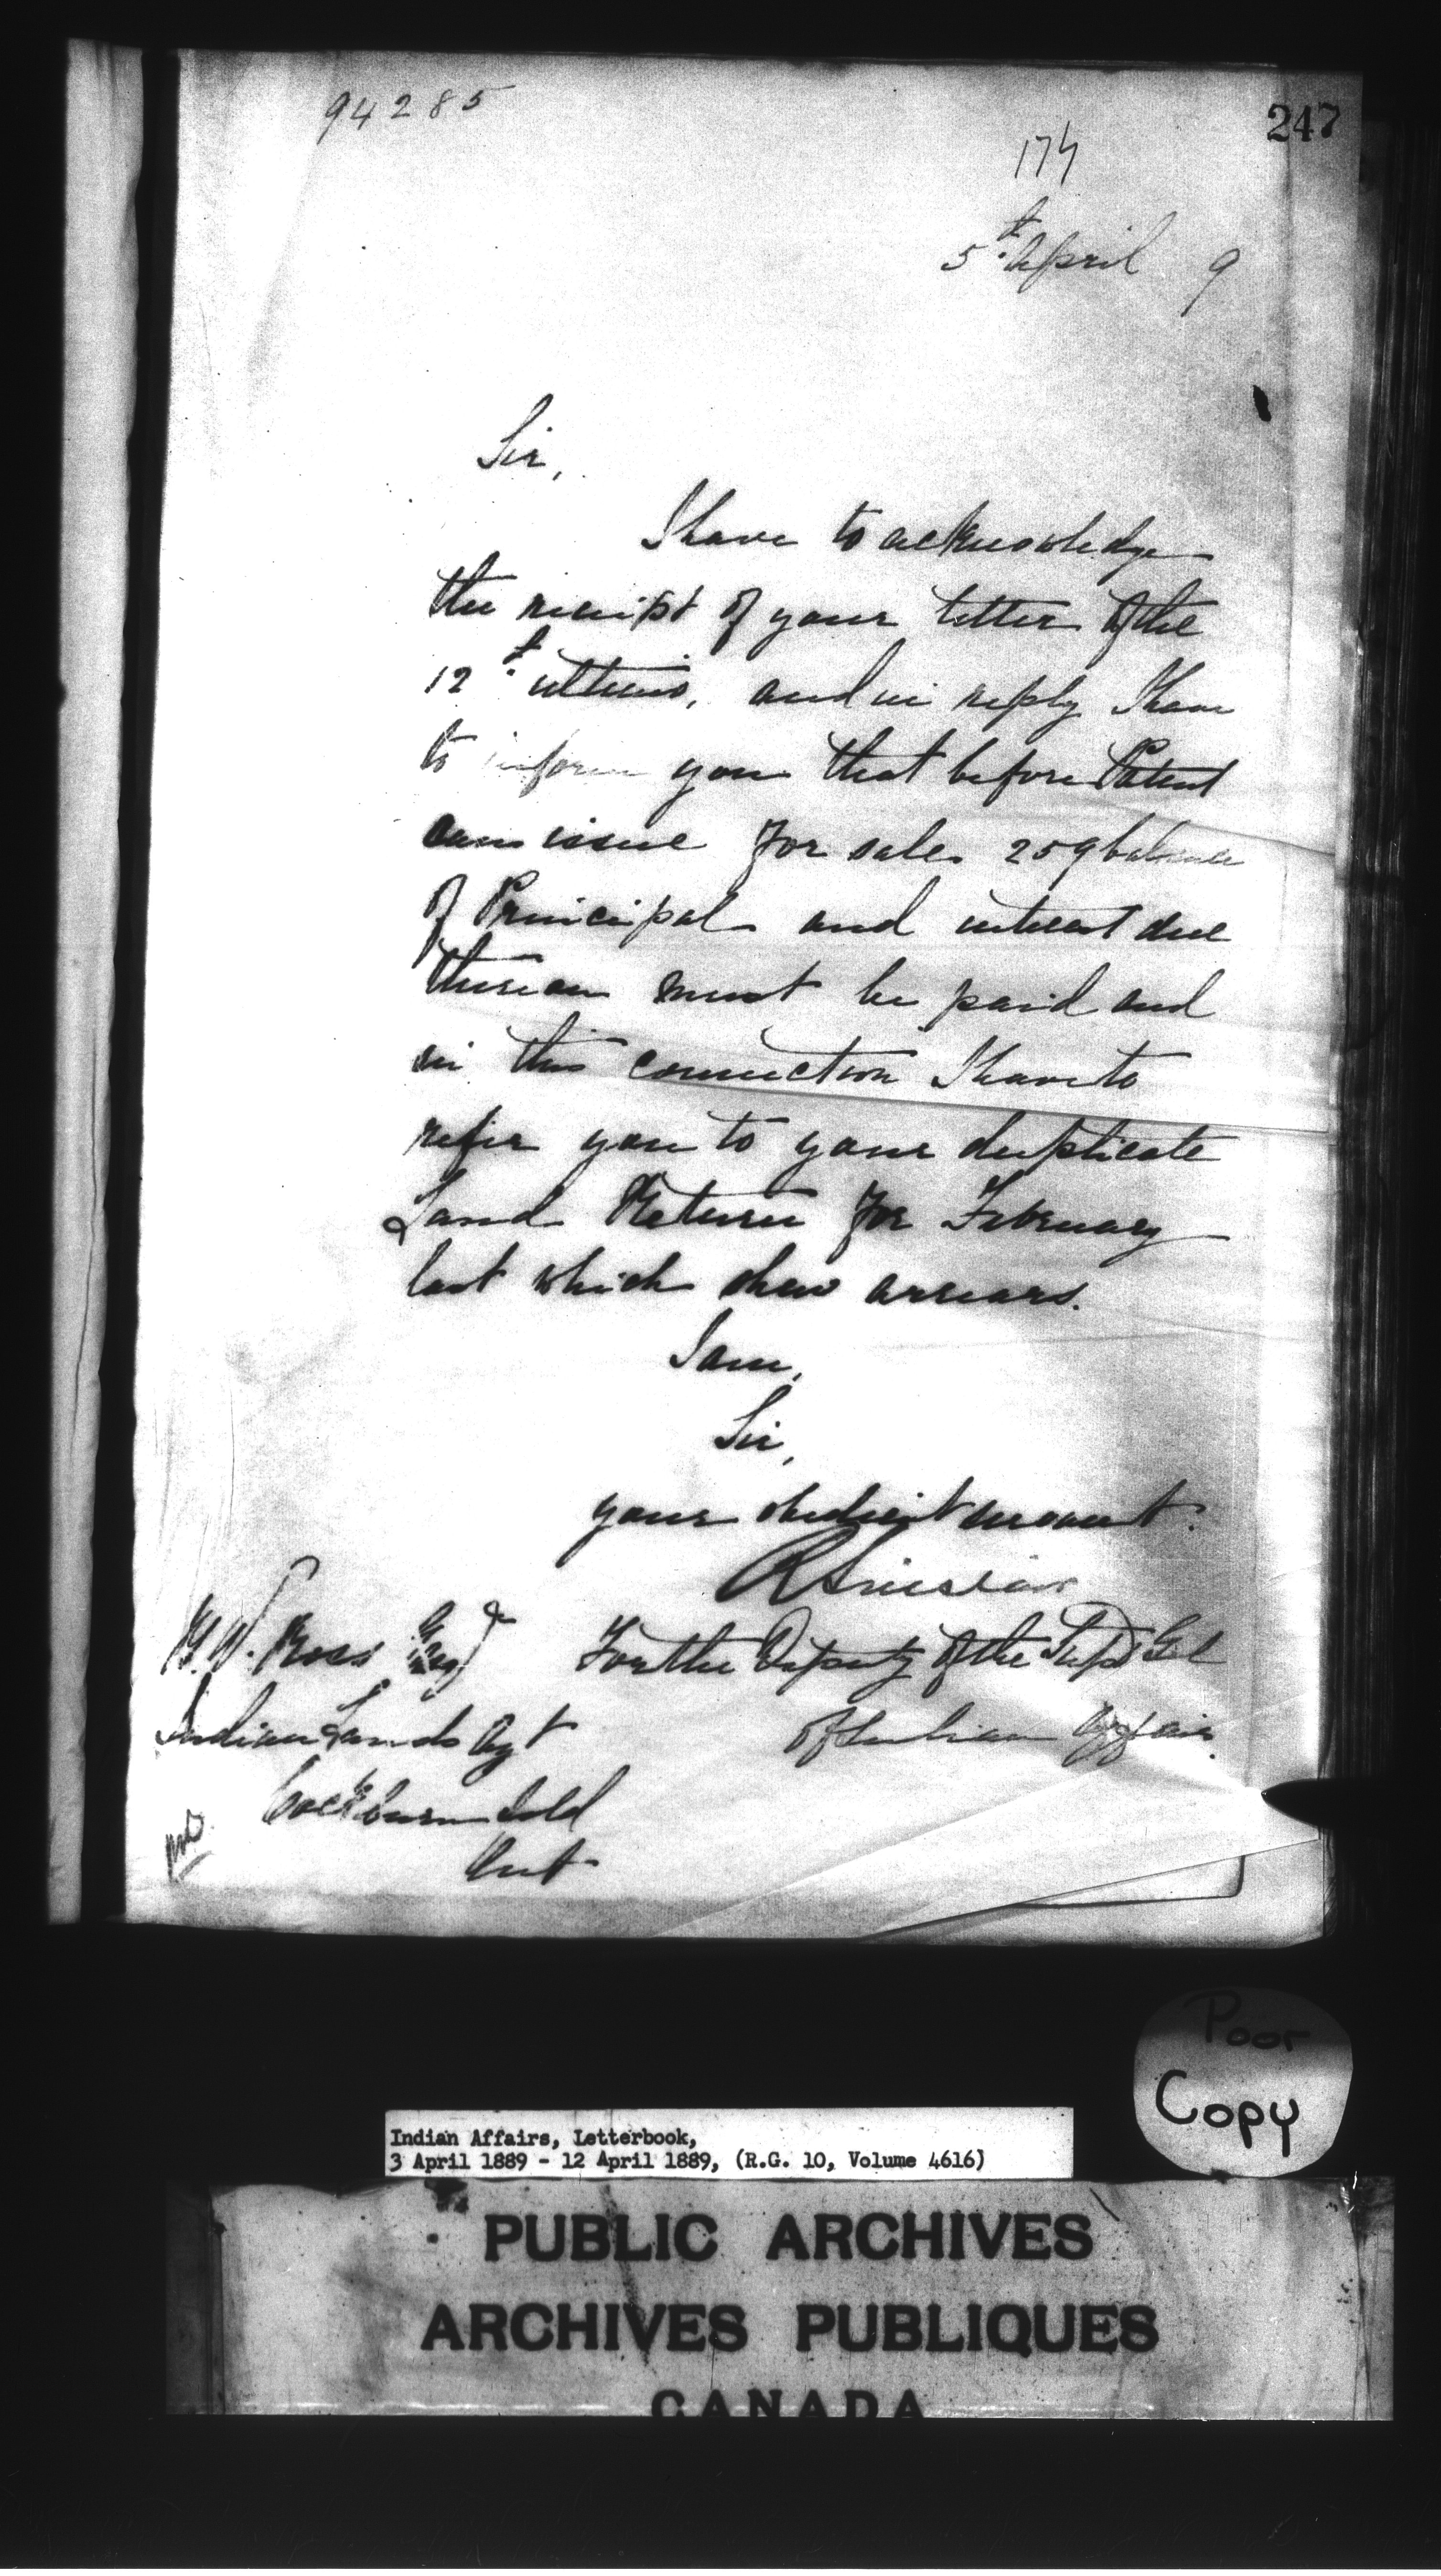 94285
247
174
5th April 9
Sir,
I have to acknowledge
the receipt of your letter of the
12th ultimo, and in reply I have
to inform you that before Patent
can issue for sale 259 balance
of Principal and interest due
thereon must be paid and
in this connection I have to
refer you to your duplicate
Land Return for February
last which shew arrears.
I am,
Sir,
your obedient servant.
R Sinclair
For the Deputy of the Supt Gel
of Indian Affairs.
B. W. Ross Esqre
Indian Lands Agt
Cockburn Isld
Ont
Poor
Copy
Indian Affairs, Letterbook,
3 April 1889 - 12 April 1889, (R.G. 10, Volume 4616)
PUBLIC ARCHIVES
ARCHIVES PUBLIQUES
CANADA